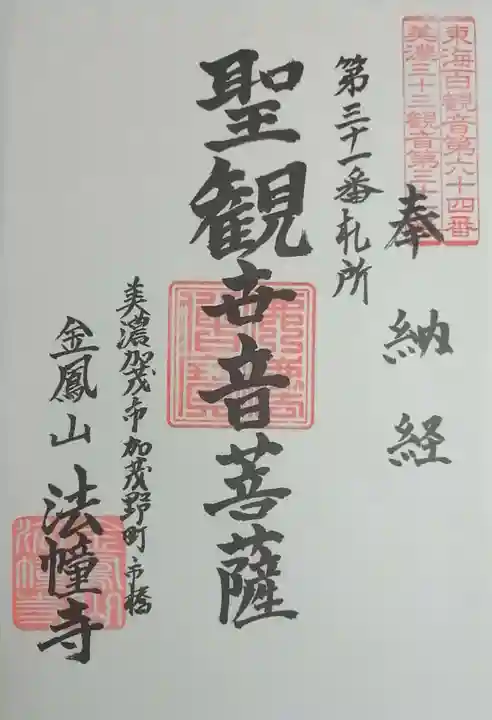 東海百観音第六十四番
美濃三十三観音第三十一
奉納経
第三十一番札所
聖観世音菩薩
美濃加茂市加茂野町市橋
金鳳山 法幢寺